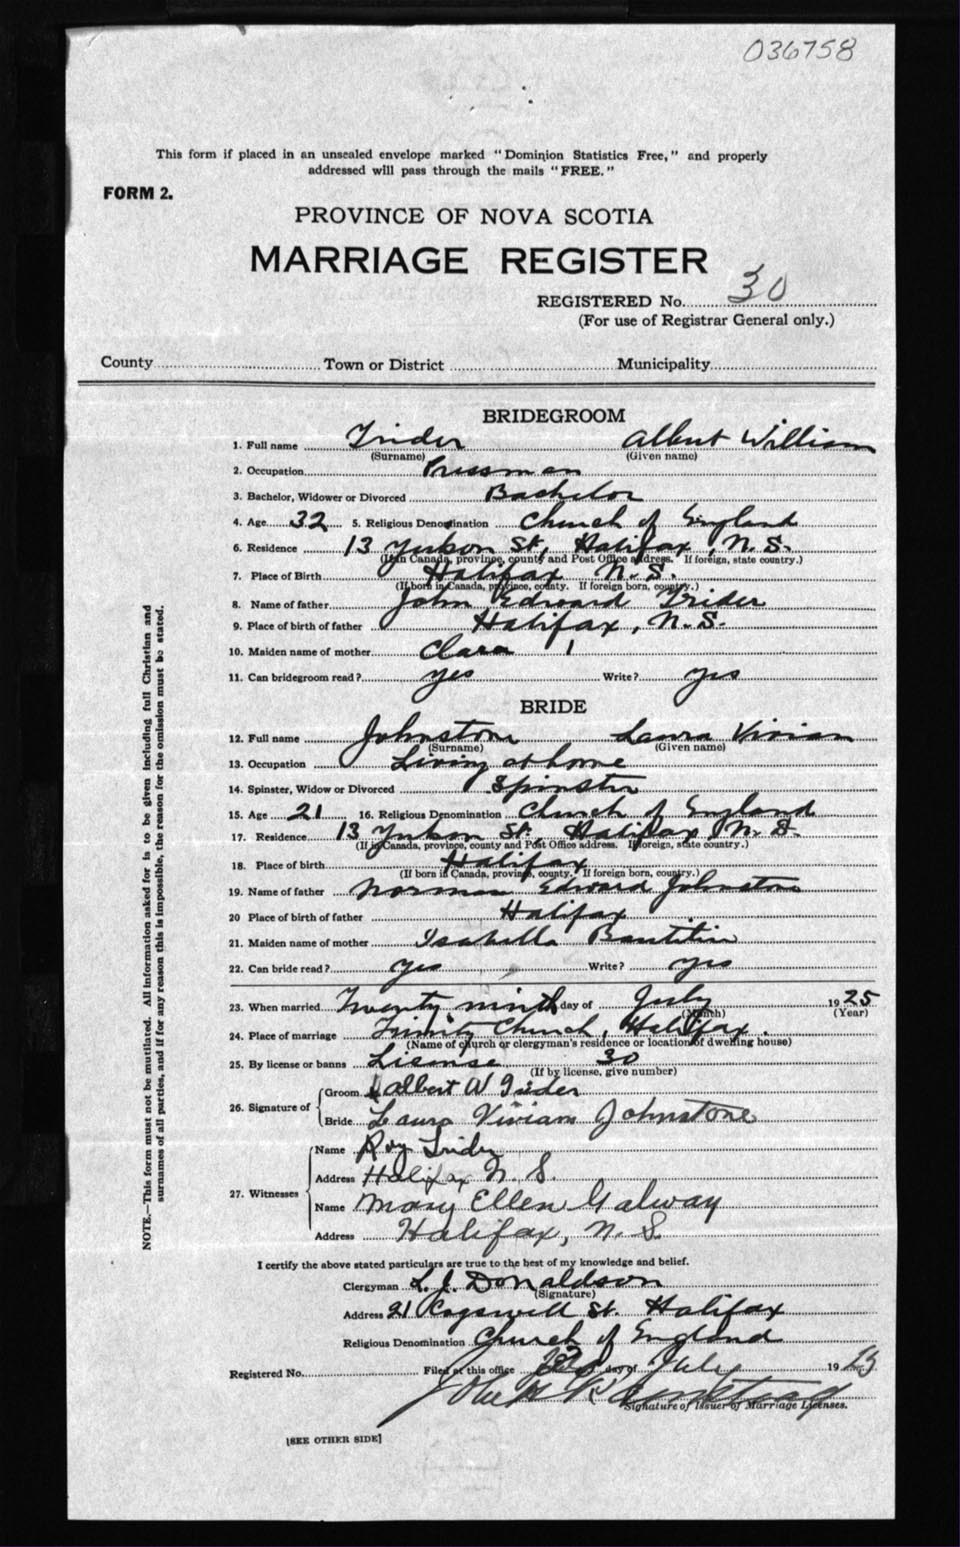 036758
This form if placed in an unsealed envelope marked "Dominion Statistics Free," and properly
addressed will pass through the mails "FREE."
FORM 2.
PROVINCE OF NOVA SCOTIA
MARRIAGE REGISTER
REGISTERED No. 30
(For use of Registrar General only.)
County Town or District Municipality
BRIDEGROOM
1. Full name Trider Albert William
(Surname) (Given name)
2. Occupation Pressman
3. Bachelor, Widower or Divorced Bachelor
4. Age 32 5. Religious Denomination Church of England
6. Residence 13 Yukon St, Halifax, N.S.
(If in Canada, province, county and Post Office address. If foreign, state country.)
7. Place of Birth Halifax N.S.
(If born in Canada, province, county. If foreign born, country.)
8. Name of father John Edward Trider
9. Place of birth of father Halifax, N.S.
10. Maiden name of mother Clara
11. Can bridegroom read? yes Write? yes
BRIDE
12. Full name Johnstone Laura Vivian
(Surname) (Given name)
13. Occupation Living at home
14. Spinster, Widow or Divorced Spinster
15. Age 21 16. Religious Denomination Church of England
17. Residence 13 Yukon St, Halifax, N.S.
(If in Canada, province, county and Post Office address. If foreign, state country.)
18. Place of birth Halifax
(If born in Canada, province, county. If foreign born, country.)
19. Name of father Norman Edward Johnstone
20 Place of birth of father Halifax
21. Maiden name of mother Isabella
22. Can bride read? yes Write? yes
23. When married Twenty ninth day of July 1925
(Month) (Year)
24. Place of marriage Trinity Church, Halifax.
(Name of church or clergyman's residence or location of dwelling house)
25. By license or banns License 30
(If by license, give number)
26. Signature of Groom Albert W Trider
Bride Laura Vivian Johnstone
27. Witnesses Name Roy Trider
Address Halifax N. S.
Name Mary Ellen Galway
Address Halifax, N. S.
I certify the above stated particulars are true to the best of my knowledge and belief.
Clergyman L. J. Donaldson
(Signature)
Address 21 Cogswell St. Halifax
Religious Denomination Church of England
Registered No. Filed at this office day of July 1925
Signature of Issuer of Marriage Licenses.
[SEE OTHER SIDE]
NOTE.—This form must not be mutilated. All information asked for is to be given including full Christian and
surnames of all parties, and if for any reason this is impossible, the reason for the omission must be stated.